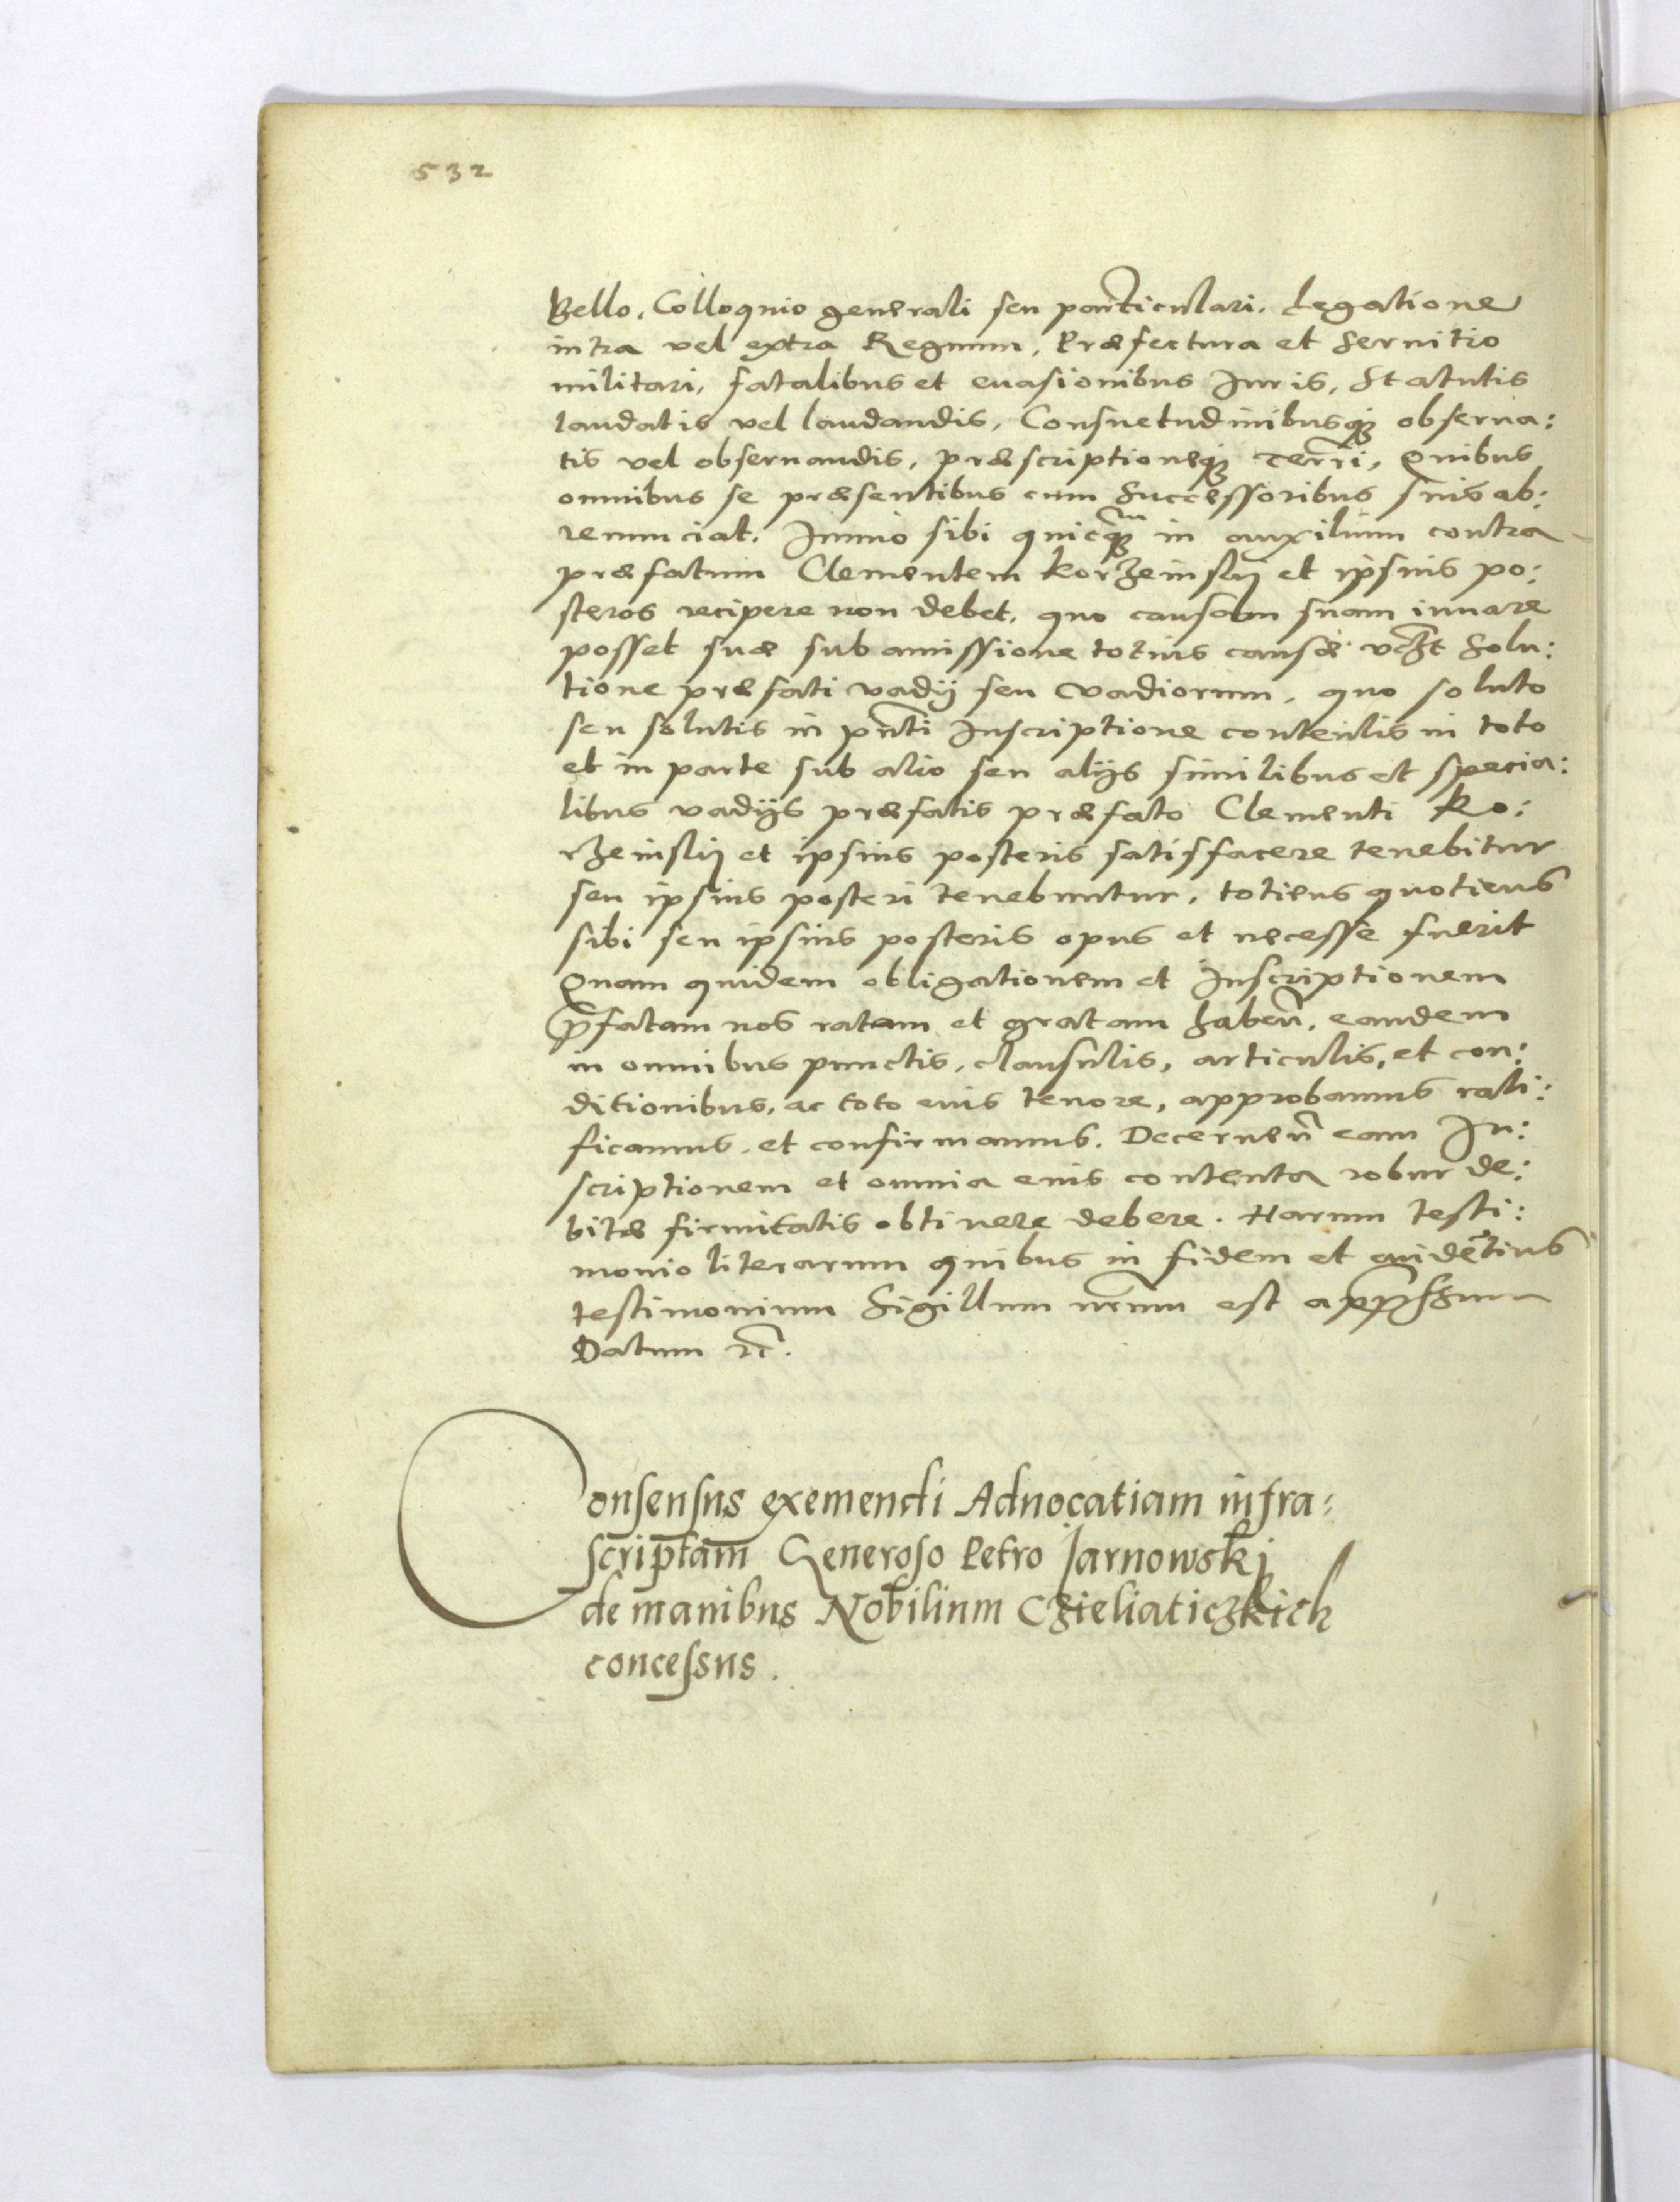 532
Bello, Colloquio generali seu particulari, Legatione
intra vel extra Regnum, Præfectura et Seruitio
militari, fatalibus et euasionibus Iuris, Statutis
laudatis vel laudandis, Consuetudinibusq; obserua:
tis vel obseruandis, præscriptioneq; Terr̃i, Quibus
omnibus se præsentibus cum Successoribus suis ab:
renunciat. Immo sibi quicq̃ in auxilium contra
præfatum Clementem Korzeinskj et ipsius po:
steros recipere non debet, quo causam suam iuuare
posset suæ sub amissione totius causæ Solu:
tione præfati vadij seu vadiorum, quo soluto
seu solutis in pñti Inscriptione contentis in toto
et in parte sub alio seu alijs similibus et specia:
libus vadijs præfatis præfato Clementi Ko:
rzeinskj et ipsius posteris satisfacere tenebitur
seu ipsius posteri tenebuntur, totiens quotiens
sibi seu ipsius posteris opus et necesse fuerit
Quam quidem obligationem et Inscriptionem
p̃fatam nos ratam et gratam habeñ, eandem
in omnibus punctis, clausulis, articulis, et con:
ditionibus, ac toto eius tenore, approbamus rati:
ficamus, et confirmamus. Decerneñ eam In:
scriptionem et omnia eius contenta robur de:
bitæ firmitatis obtinere debere. Harum testi:
monio literarum quibus in fidem et euidẽtius
testimonium Sigillum nr̃um est app̃ssum
Datum ꝛc̃.
Consensus exemendi Aduocatiam infra:
scriptam̃ Generoso Petro Jarnowskj
de manibus Nobilium Czieliaticzkich
concessus.